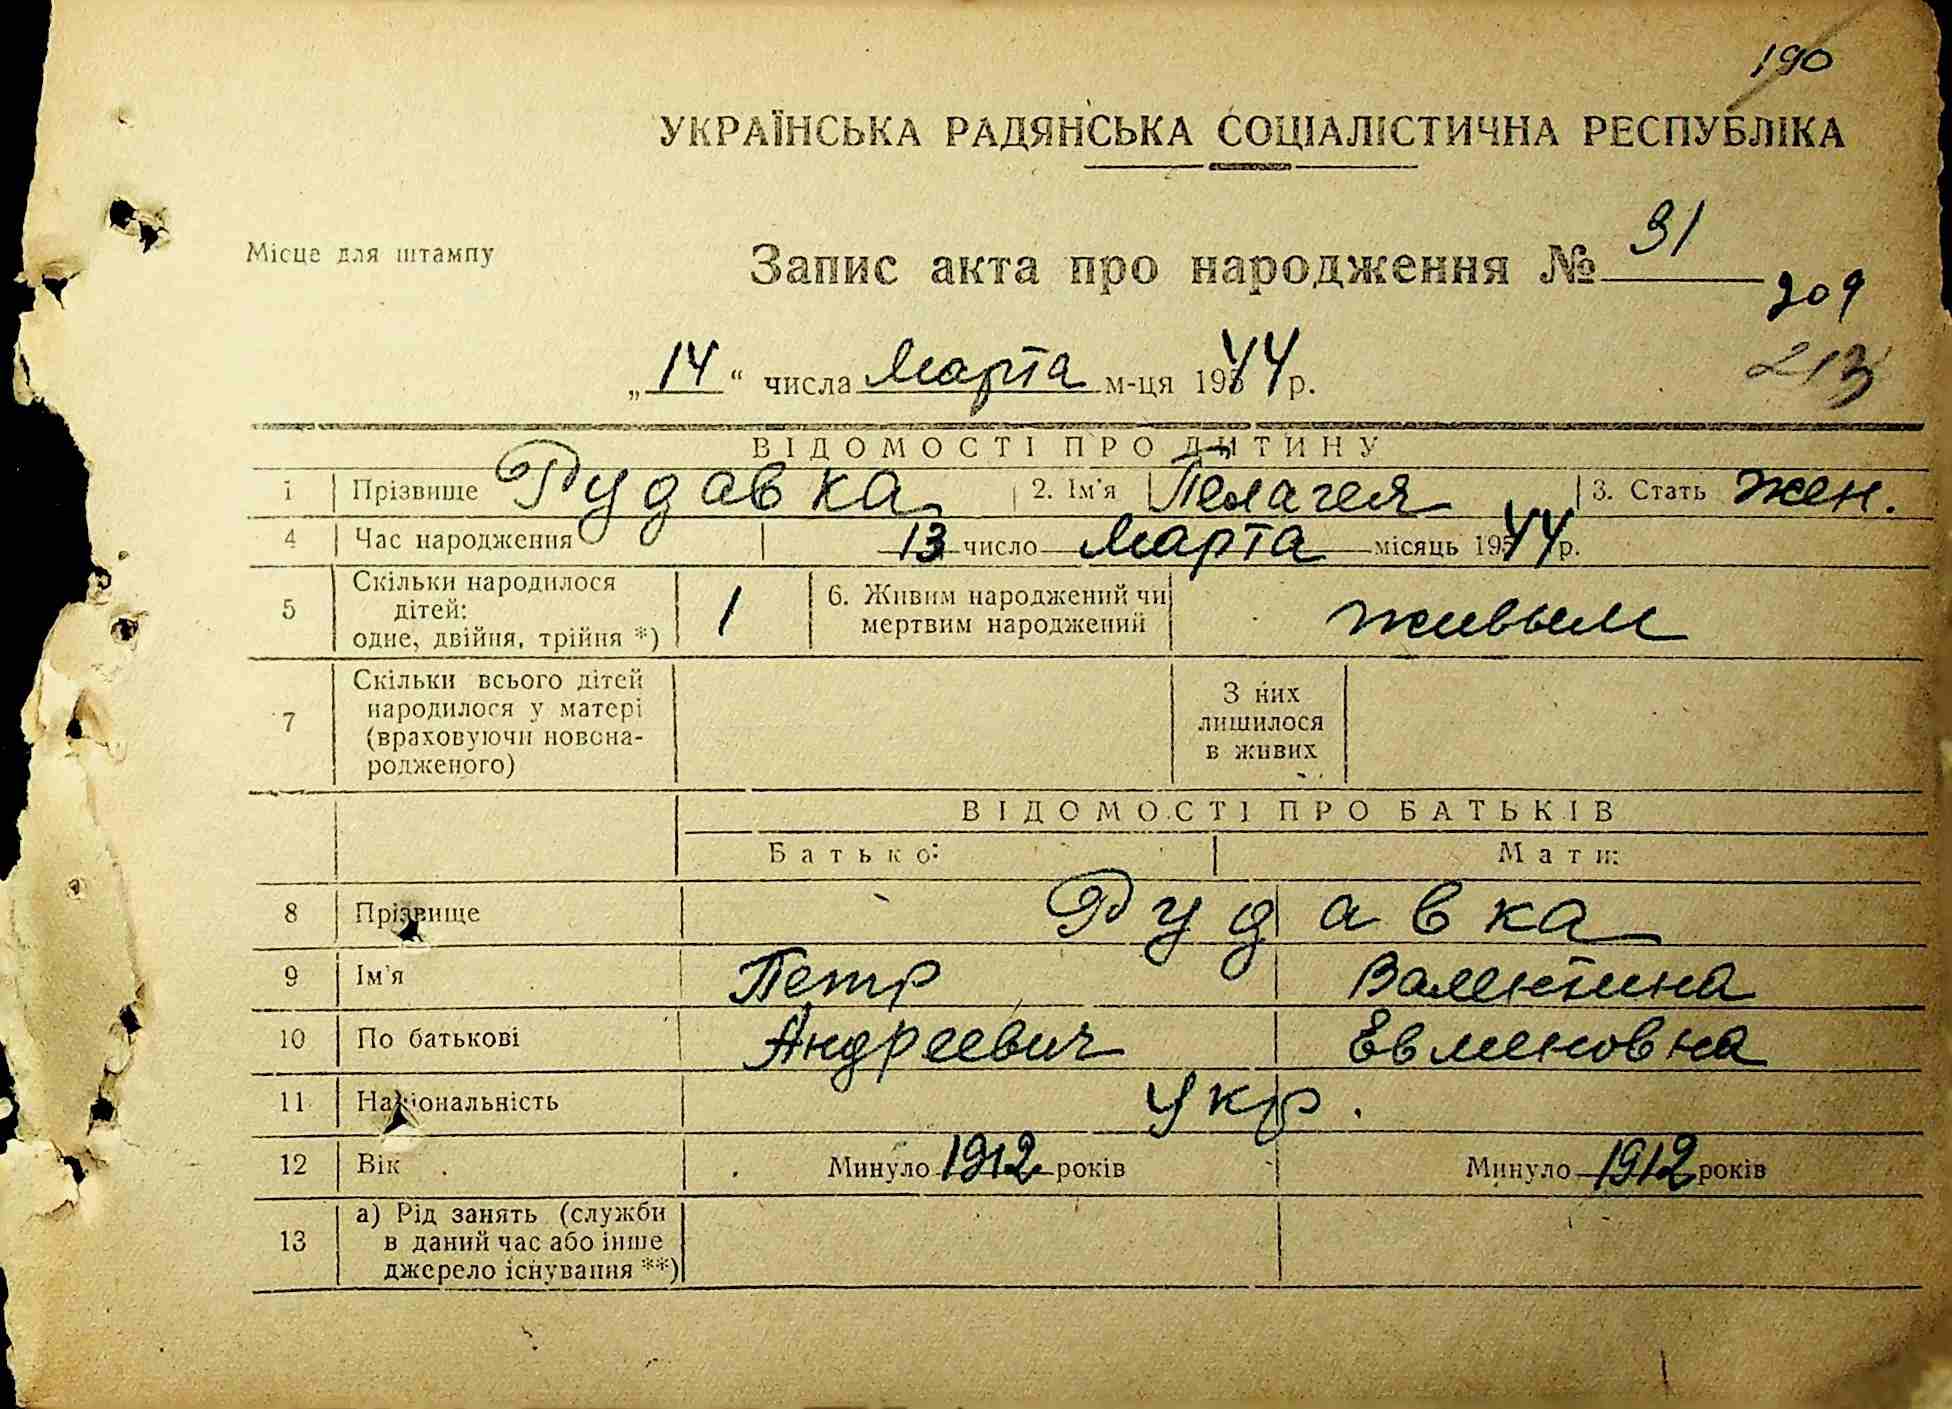 190
УКРАЇНСЬКА РАДЯНСЬКА СОЦІАЛІСТИЧНА РЕСПУБЛІКА
Місце для штампу
Запис акта про народження № 91
209
213
„14“ числа Марта м-ця 1944 р.
ВІДОМОСТІ ПРО ДИТИНУ
1 Прізвище Рудавка 2. Ім'я Пелагея 3. Стать жен.
4 Час народження 13 число Марта місяць 1944 р.
5 Скільки народилося дітей: одне, двійня, трійня *) 1 6. Живим народжений чи мертвим народжений живым
7 Скільки всього дітей народилося у матері (враховуючи новонародженого) З них лишилося в живих
ВІДОМОСТІ ПРО БАТЬКІВ
Батько: Мати:
8 Прізвище Рудавка
9 Ім'я Петр Валентина
10 По батькові Андреевич Евменовна
11 Національність Укр.
12 Вік Минуло 1912 років Минуло 1912 років
13 а) Рід занять (служби в даний час або інше джерело існування **)